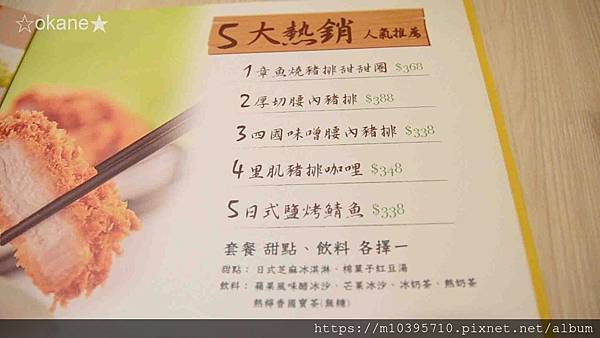 ☆okane★
5大熱銷 人氣推薦
1章魚燒豬排甜甜圈 $368
2厚切腰內豬排 $388
3四國味噌腰內豬排 $338
4里肌豬排咖哩 $348
5日式鹽烤鯖魚 $338
套餐 甜點、飲料 各擇一
甜點： 日式芝麻冰淇淋、椰菓子紅豆湯
飲料： 蘋果風味醋冰沙、芒果冰沙、冰奶茶、熱奶茶
熱檸香國寶茶(無糖)
https://m10395710.pixnet.net/album